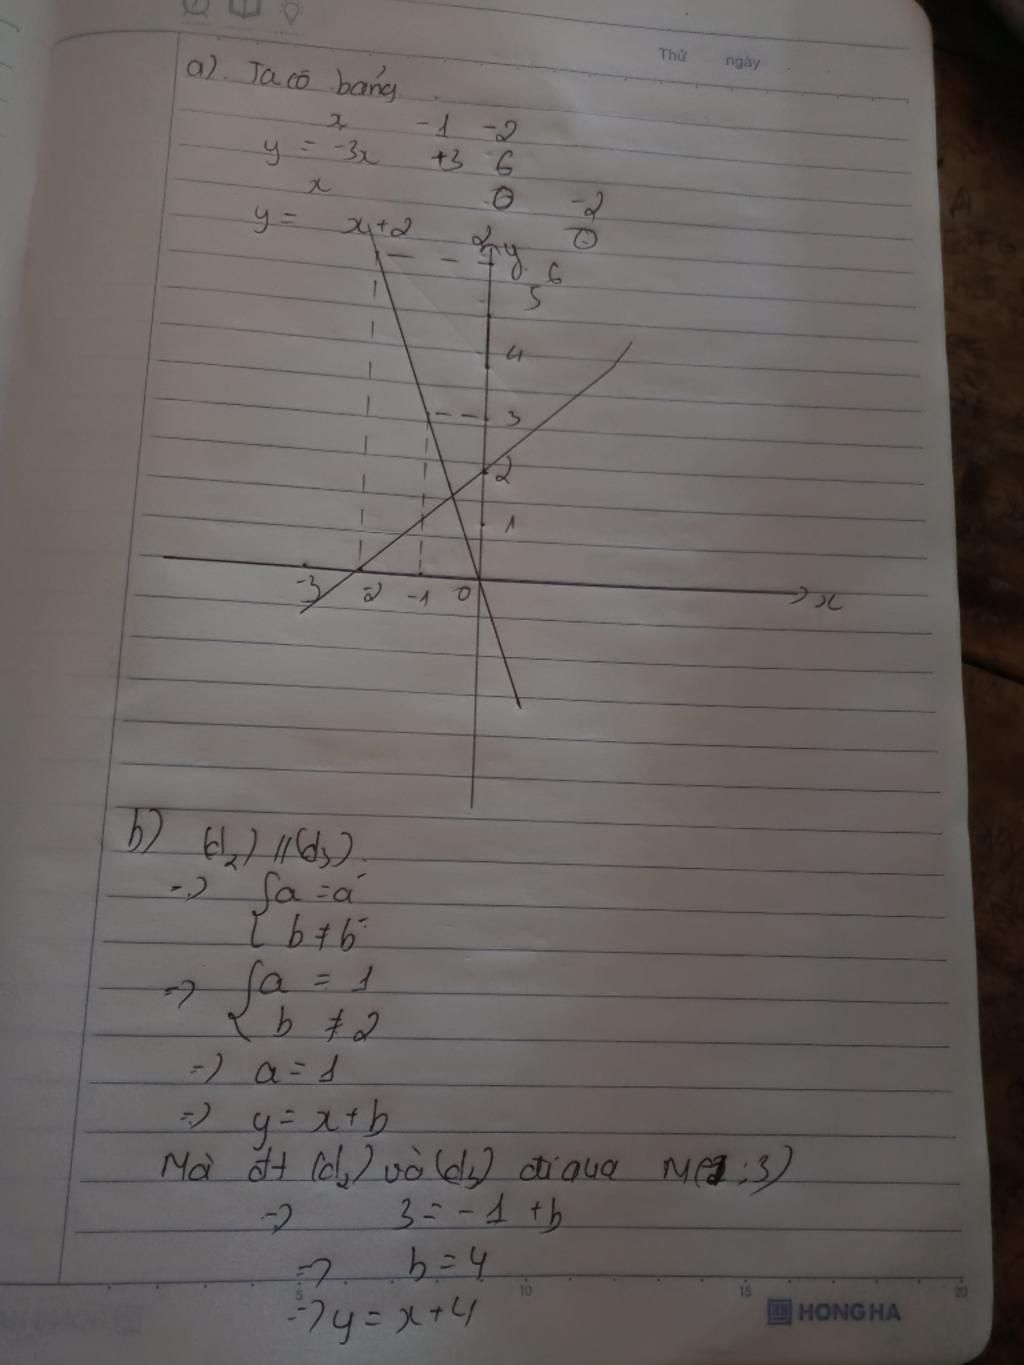 Thứ ngày
a). Ta có bảng
x -1 -2
y = -3x +3 6
x 0 -2
y = x+2 2 0
y
6
5
4
3
2
1
-3 -2 -1 0 x
b) (d₂) // (d₃).
=> { a = a'
b ≠ b'
=> { a = 1
b ≠ 2
=> a = 1
=> y = x + b
Mà đt (d₂) và (d₃) đi qua M( ;3)
=> 3 = -1 + b
=> b = 4
=> y = x+4
5 10 15 20
HONG HA